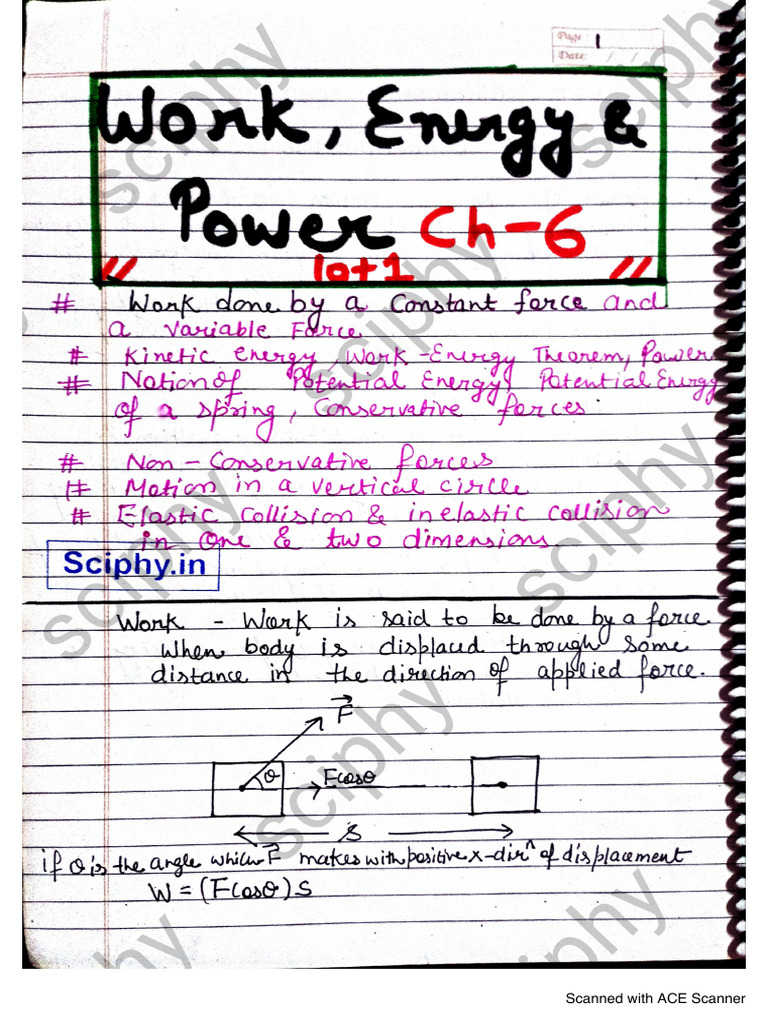 Page: 1
Date:
Work, Energy &
Power Ch-6
10+1
# Work done by a Constant force and
a Variable Force
# Kinetic energy, Work-Energy Theorem, Power
# Notion of Potential Energy, Potential Energy
of a spring, Conservative forces
# Non-Conservative forces
# Motion in a vertical circle
# Elastic collision & inelastic collision
in one & two dimensions
Sciphy.in
Work - Work is said to be done by a force
when body is displaced through some
distance in the direction of applied force.
F
θ Fcosθ
s
if θ is the angle which F makes with positive x-dirⁿ of displacement
W = (Fcosθ)s
sciphy
sciphy
sciphy
sciphy
sciphy
sciphy
sciphy
sciphy
sciphy
Scanned with ACE Scanner